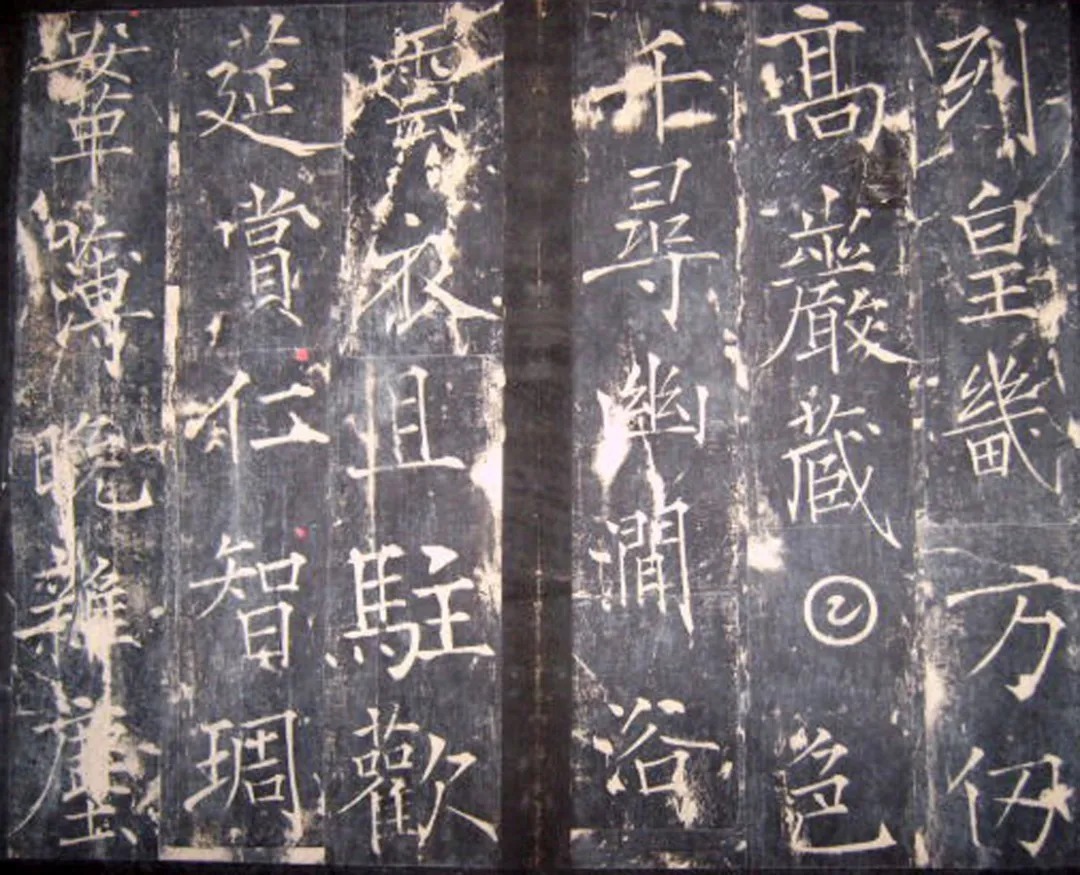 列皇畿万仞
髙巖藏𡆠色
千尋幽澗浴
雲衣且駐歡
筵賞仁智琱
鞌薄晚雜塵